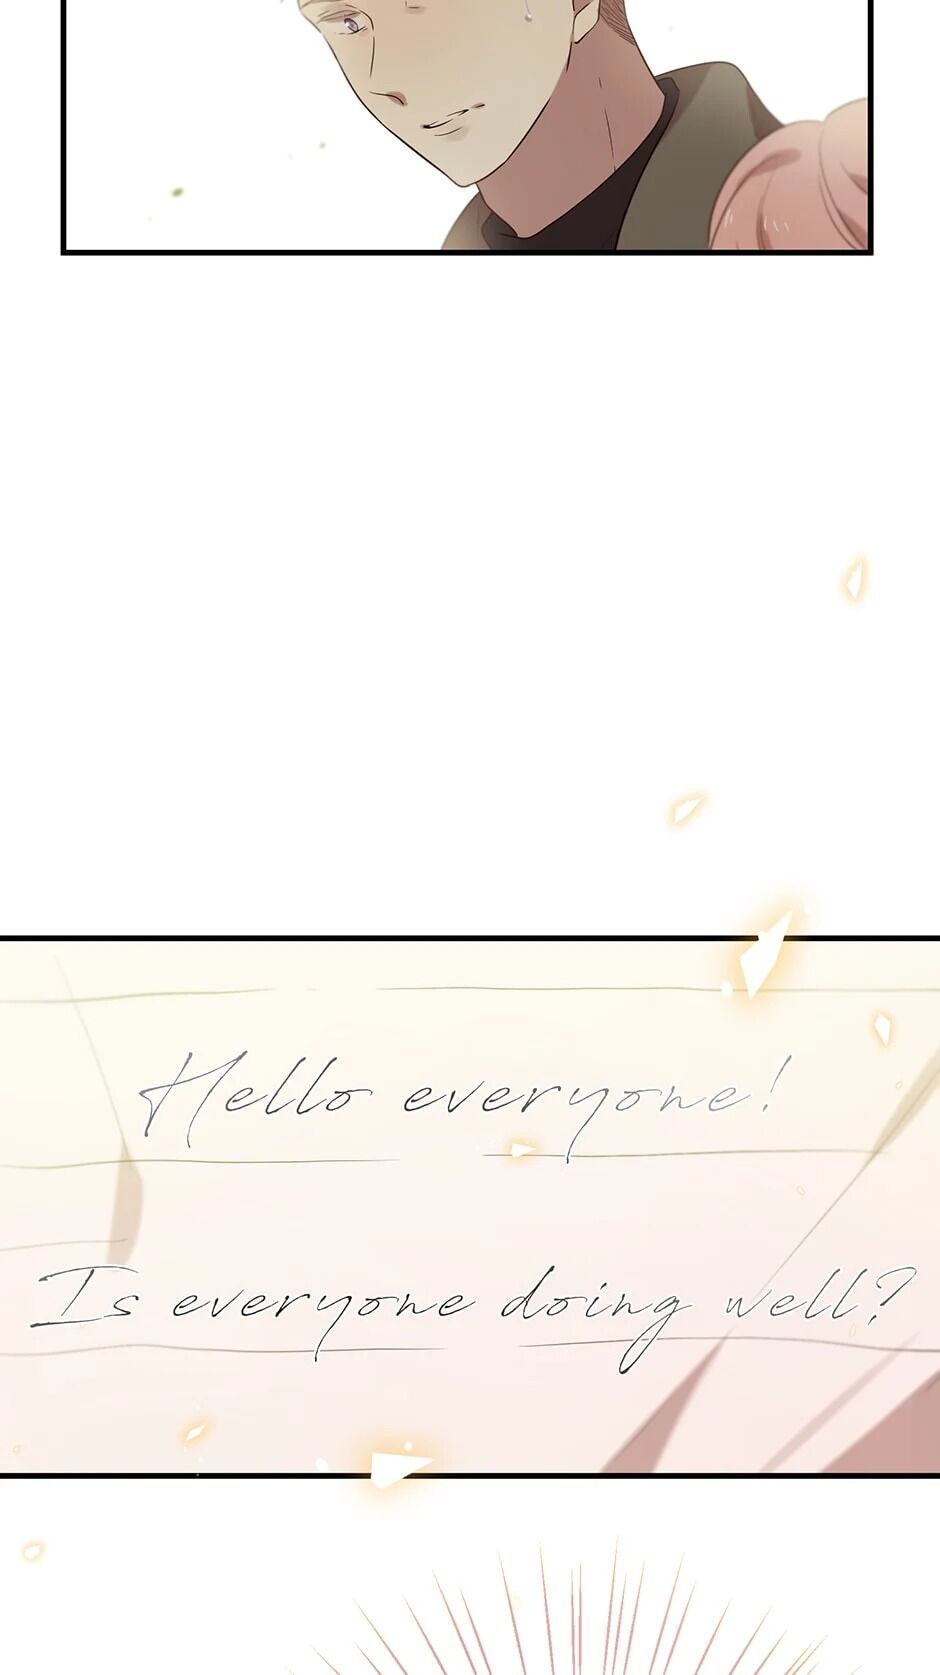 Hello everyone!
Is everyone doing well?